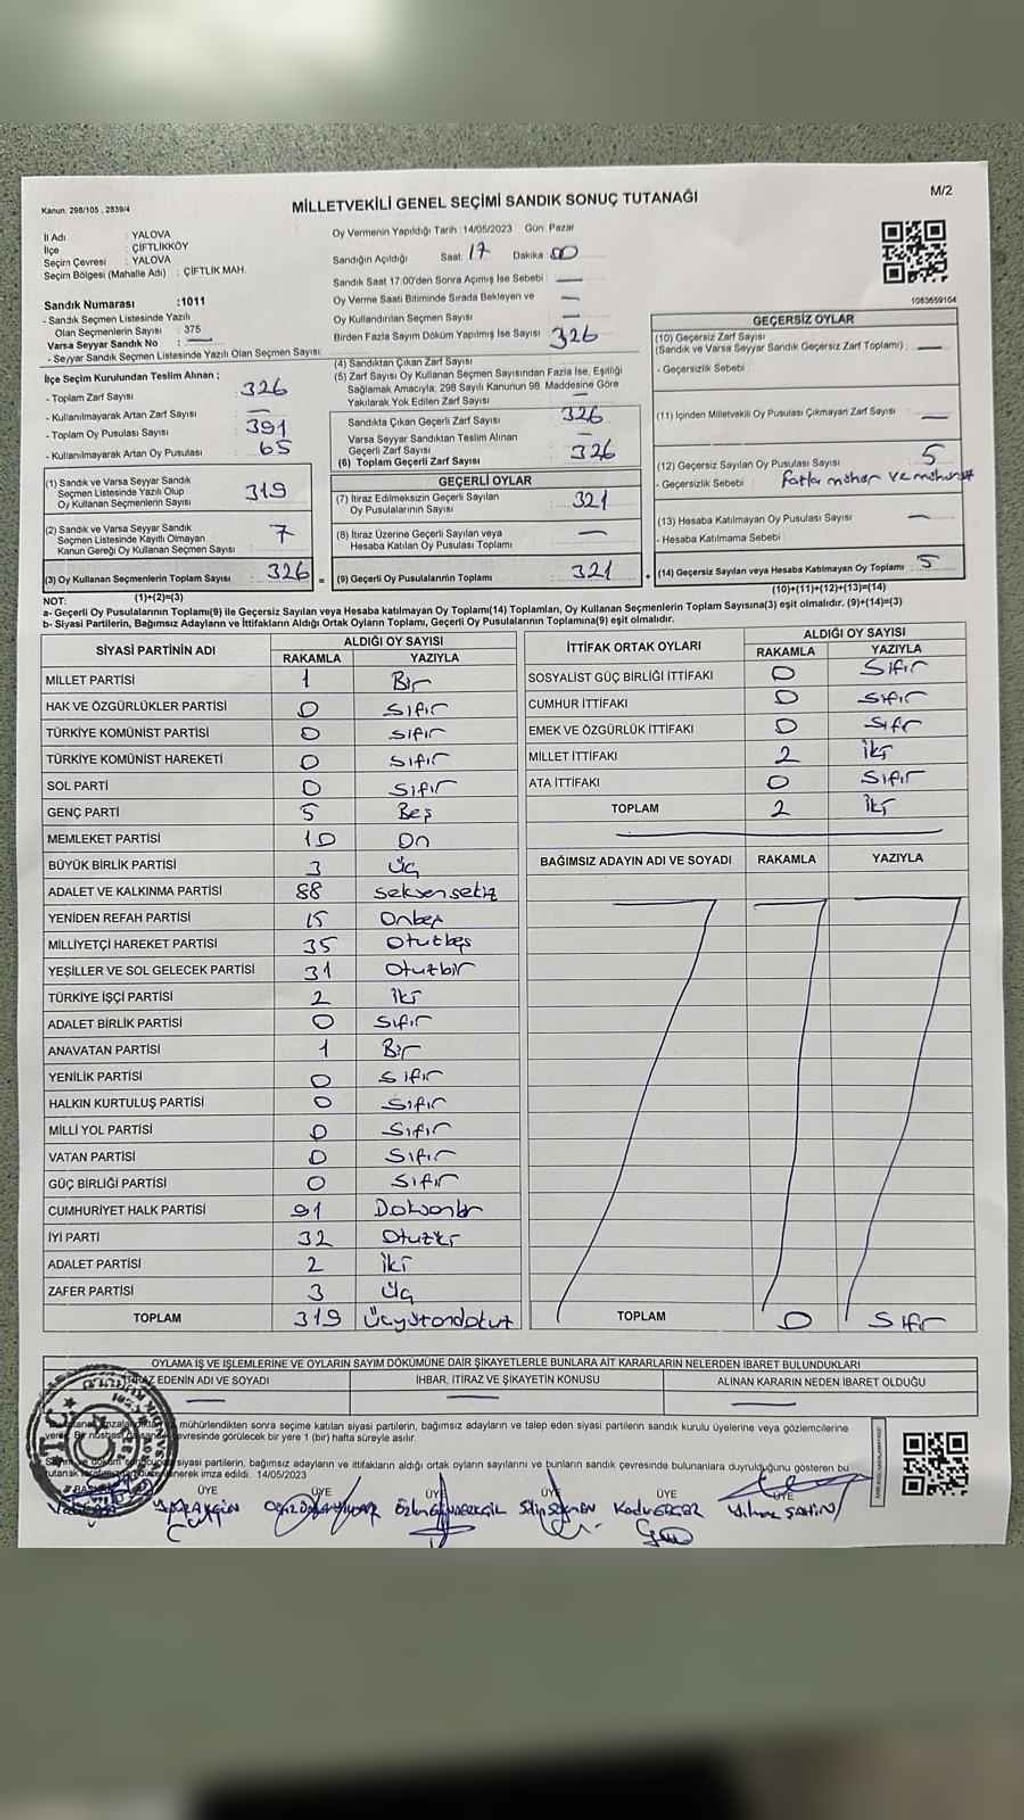 M/2
Kanun: 298/105 , 2839/4
MİLLETVEKİLİ GENEL SEÇİMİ SANDIK SONUÇ TUTANAĞI
İl Adı : YALOVA
İlçe : ÇİFTLİKKÖY
Seçim Çevresi : YALOVA
Seçim Bölgesi (Mahalle Adı) : ÇİFTLİK MAH.
Sandık Numarası :1011
- Sandık Seçmen Listesinde Yazılı
Olan Seçmenlerin Sayısı : 375
Varsa Seyyar Sandık No : —
- Seyyar Sandık Seçmen Listesinde Yazılı Olan Seçmen Sayısı:
Oy Vermenin Yapıldığı Tarih :14/05/2023 Gün: Pazar
Sandığın Açıldığı Saat: 17 Dakika: 00
Sandık Saat 17:00'den Sonra Açımış İse Sebebi : —
Oy Verme Saati Bitiminde Sırada Bekleyen ve —
Oy Kullandırılan Seçmen Sayısı —
Birden Fazla Sayım Döküm Yapılmış İse Sayısı 326
1083659104
İlçe Seçim Kurulundan Teslim Alınan ;
- Toplam Zarf Sayısı 326
- Kullanılmayarak Artan Zarf Sayısı —
- Toplam Oy Pusulası Sayısı 391
- Kullanılmayarak Artan Oy Pusulası 65
(1) Sandık ve Varsa Seyyar Sandık
Seçmen Listesinde Yazılı Olup 319
Oy Kullanan Seçmenlerin Sayısı
(2) Sandık ve Varsa Seyyar Sandık
Seçmen Listesinde Kayıtlı Olmayan 7
Kanun Gereği Oy Kullanan Seçmen Sayısı
(3) Oy Kullanan Seçmenlerin Toplam Sayısı 326 =
(1)+(2)=(3)
(4) Sandıktan Çıkan Zarf Sayısı
(5) Zarf Sayısı Oy Kullanan Seçmen Sayısından Fazla İse, Eşitliği
Sağlamak Amacıyla; 298 Sayılı Kanunun 98. Maddesine Göre
Yakılarak Yok Edilen Zarf Sayısı —
Sandıkta Çıkan Geçerli Zarf Sayısı 326
Varsa Seyyar Sandıktan Teslim Alınan —
Geçerli Zarf Sayısı
(6) Toplam Geçerli Zarf Sayısı 326
GEÇERLİ OYLAR
(7) İtiraz Edilmeksizin Geçerli Sayılan 321
Oy Pusulalarının Sayısı
(8) İtiraz Üzerine Geçerli Sayılan veya —
Hesaba Katılan Oy Pusulası Toplamı
(9) Geçerli Oy Pusulalarının Toplamı 321 +
GEÇERSİZ OYLAR
(10) Geçersiz Zarf Sayısı
(Sandık ve Varsa Seyyar Sandık Geçersiz Zarf Toplamı) : —
- Geçersizlik Sebebi
(11) İçinden Milletvekili Oy Pusulası Çıkmayan Zarf Sayısı —
(12) Geçersiz Sayılan Oy Pusulası Sayısı 5
- Geçersizlik Sebebi fazla mühür ve
(13) Hesaba Katılmayan Oy Pusulası Sayısı —
- Hesaba Katılmama Sebebi
(14) Geçersiz Sayılan veya Hesaba Katılmayan Oy Toplamı 5
(10)+(11)+(12)+(13)=(14)
NOT:
a- Geçerli Oy Pusulalarının Toplamı(9) ile Geçersiz Sayılan veya Hesaba katılmayan Oy Toplamı(14) Toplamları, Oy Kullanan Seçmenlerin Toplam Sayısına(3) eşit olmalıdır. (9)+(14)=(3)
b- Siyasi Partilerin, Bağımsız Adayların ve İttifakların Aldığı Ortak Oyların Toplamı, Geçerli Oy Pusulalarının Toplamına(9) eşit olmalıdır.
SİYASİ PARTİNİN ADI ALDIĞI OY SAYISI
RAKAMLA YAZIYLA
MİLLET PARTİSİ 1 Bir
HAK VE ÖZGÜRLÜKLER PARTİSİ 0 Sıfır
TÜRKİYE KOMÜNİST PARTİSİ 0 Sıfır
TÜRKİYE KOMÜNİST HAREKETİ 0 Sıfır
SOL PARTİ 0 Sıfır
GENÇ PARTİ 5 Beş
MEMLEKET PARTİSİ 10 On
BÜYÜK BİRLİK PARTİSİ 3 Üç
ADALET VE KALKINMA PARTİSİ 88 Seksensekiz
YENİDEN REFAH PARTİSİ 15 Onbeş
MİLLİYETÇİ HAREKET PARTİSİ 35 Otuzbeş
YEŞİLLER VE SOL GELECEK PARTİSİ 31 Otuzbir
TÜRKİYE İŞÇİ PARTİSİ 2 İki
ADALET BİRLİK PARTİSİ 0 Sıfır
ANAVATAN PARTİSİ 1 Bir
YENİLİK PARTİSİ 0 Sıfır
HALKIN KURTULUŞ PARTİSİ 0 Sıfır
MİLLİ YOL PARTİSİ 0 Sıfır
VATAN PARTİSİ 0 Sıfır
GÜÇ BİRLİĞİ PARTİSİ 0 Sıfır
CUMHURİYET HALK PARTİSİ 91 Doksanbir
İYİ PARTİ 32 Otuziki
ADALET PARTİSİ 2 İki
ZAFER PARTİSİ 3 Üç
TOPLAM 319 Üçyüzondokuz
İTTİFAK ORTAK OYLARI ALDIĞI OY SAYISI
RAKAMLA YAZIYLA
SOSYALİST GÜÇ BİRLİĞİ İTTİFAKI 0 Sıfır
CUMHUR İTTİFAKI 0 Sıfır
EMEK VE ÖZGÜRLÜK İTTİFAKI 0 Sıfır
MİLLET İTTİFAKI 2 İki
ATA İTTİFAKI 0 Sıfır
TOPLAM 2 İki
BAĞIMSIZ ADAYIN ADI VE SOYADI RAKAMLA YAZIYLA
TOPLAM 0 Sıfır
OYLAMA İŞ VE İŞLEMLERİNE VE OYLARIN SAYIM DÖKÜMÜNE DAİR ŞİKAYETLERLE BUNLARA AİT KARARLARIN NELERDEN İBARET BULUNDUKLARI
EDENİN ADI VE SOYADI İHBAR, İTİRAZ VE ŞİKAYETİN KONUSU ALINAN KARARIN NEDEN İBARET OLDUĞU
— — —
mühürlendikten sonra seçime katılan siyasi partilerin, bağımsız adayların ve talep eden siyasi partilerin sandık kurulu üyelerine veya gözlemcilerine
verilir. Bir nüshası da çevresinde görülecek bir yere 1 (bir) hafta süreyle asılır.
siyasi partilerin, bağımsız adayların ve ittifakların aldığı ortak oyların sayılarını ve bunların sandık çevresinde bulunanlara duyrulduğunu gösteren bu
tutanak düzenlenerek imza edildi. 14/05/2023
BAŞKAN ÜYE ÜYE ÜYE ÜYE ÜYE ÜYE
Yılmaz ŞAHİN